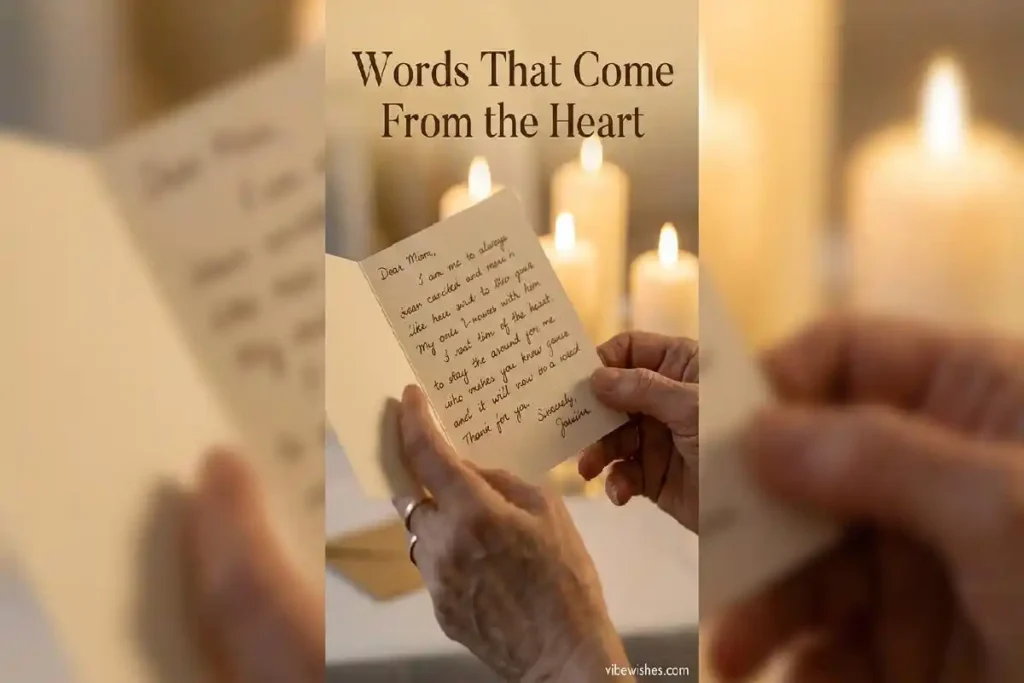 Words That Come
From the Heart
Dear Mom,
I am me to always
bean carcted and mean n
like here and to ther guest
My only I-nowes with hom
I rest tim of the heart.
to stay the around for me
who wishes you know game
and it will now on a voied
Thank for you.
Sincerely,
vibewishes.com